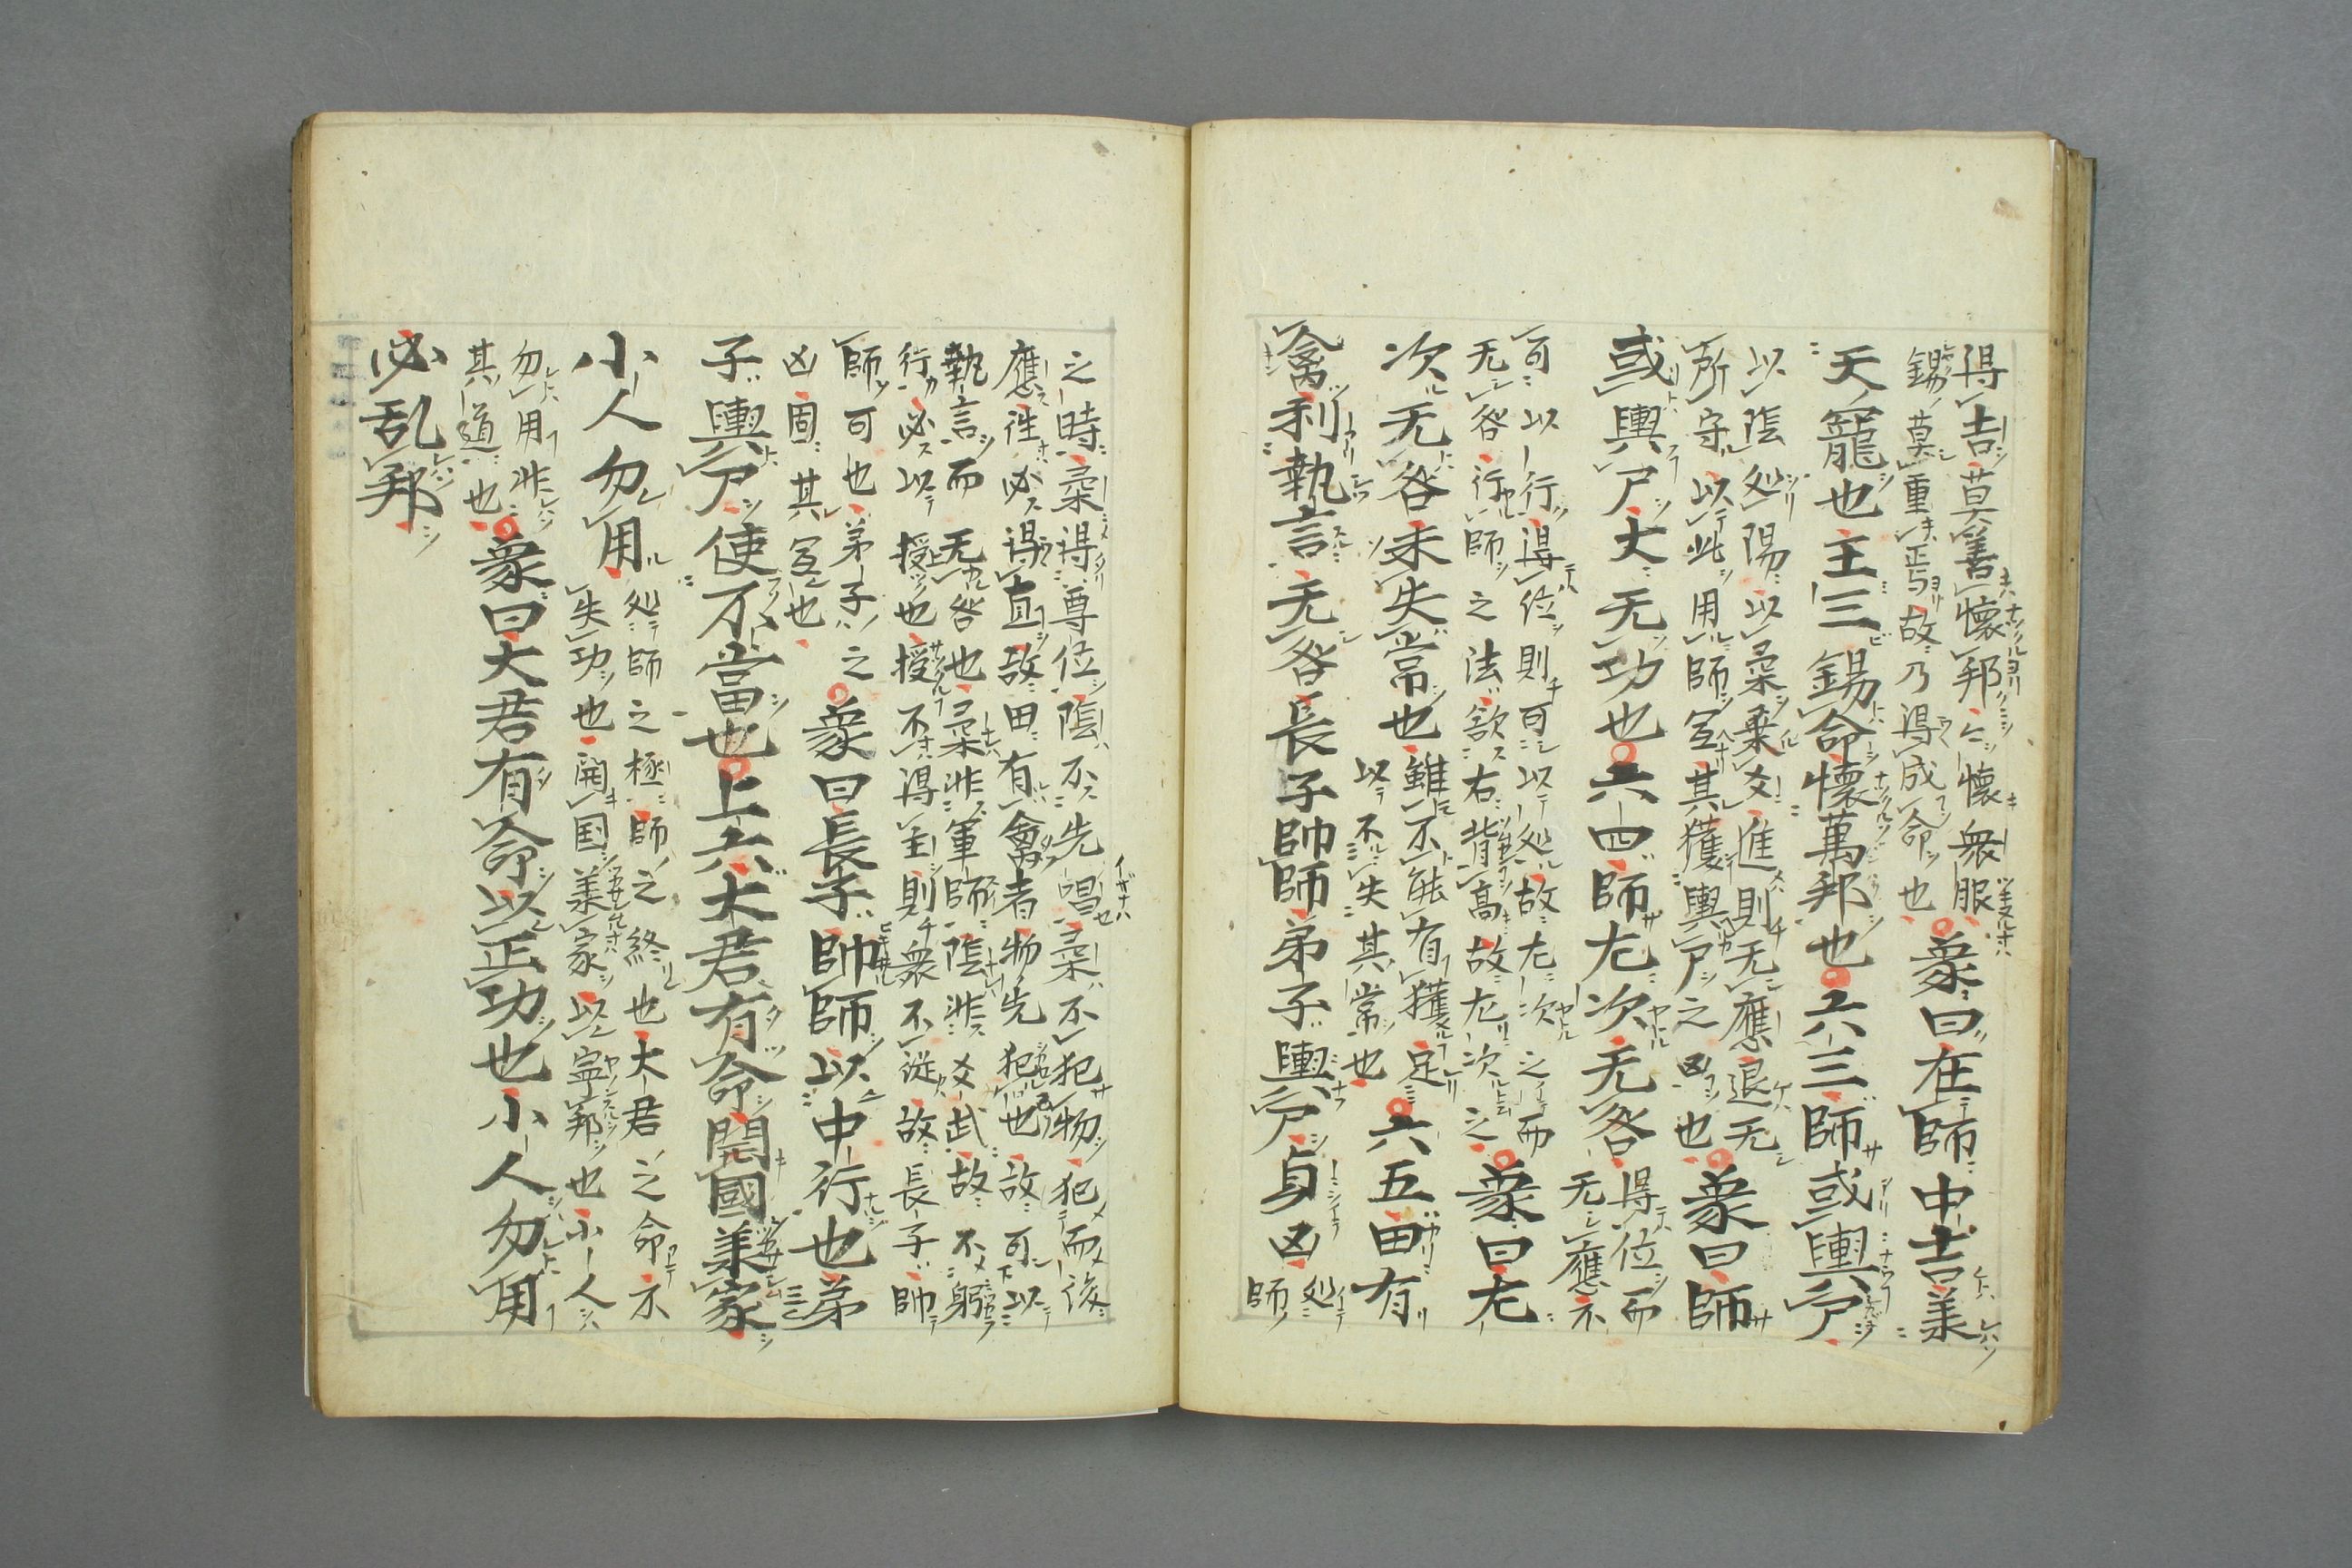 得吉莫善懷邦〻懷衆服
錫莫重焉故乃得成命也
象曰在師中吉羕
天寵也王三錫命懷萬邦也六三師或輿尸
以陰処陽以柔乗爻進則无應退无
所守以此用師宜其獲輿尸之凶也
象曰師
或輿尸大无功也六四師左次无咎
得位而
无應不
可以行得位則可以処故左次之而
无咎行師之法欲右背高故左次之
象曰左
次无咎未失常也
雖不能有獲足
以不失其常也
六五田有
禽利執言无咎長子帥師弟子輿尸貞凶
処
師
之時柔得尊位陰不先唱柔不犯物犯而後
應往必得直故田有禽者物先犯也故可以
執言而无咎也柔非軍師陰非爻武故不躬
行必以授也授不得主則衆不従故長子帥
師可也弟子之
凶固其宜也
象曰長子帥師以中行也弟
子輿尸使不當也上六大君有命開國羕家
小人勿用
処師之極師之終也大君之命不
失功也開国羕家以寧邦也小人
勿用非
其道也
象曰大君有命以正功也小人勿用
必乱邦